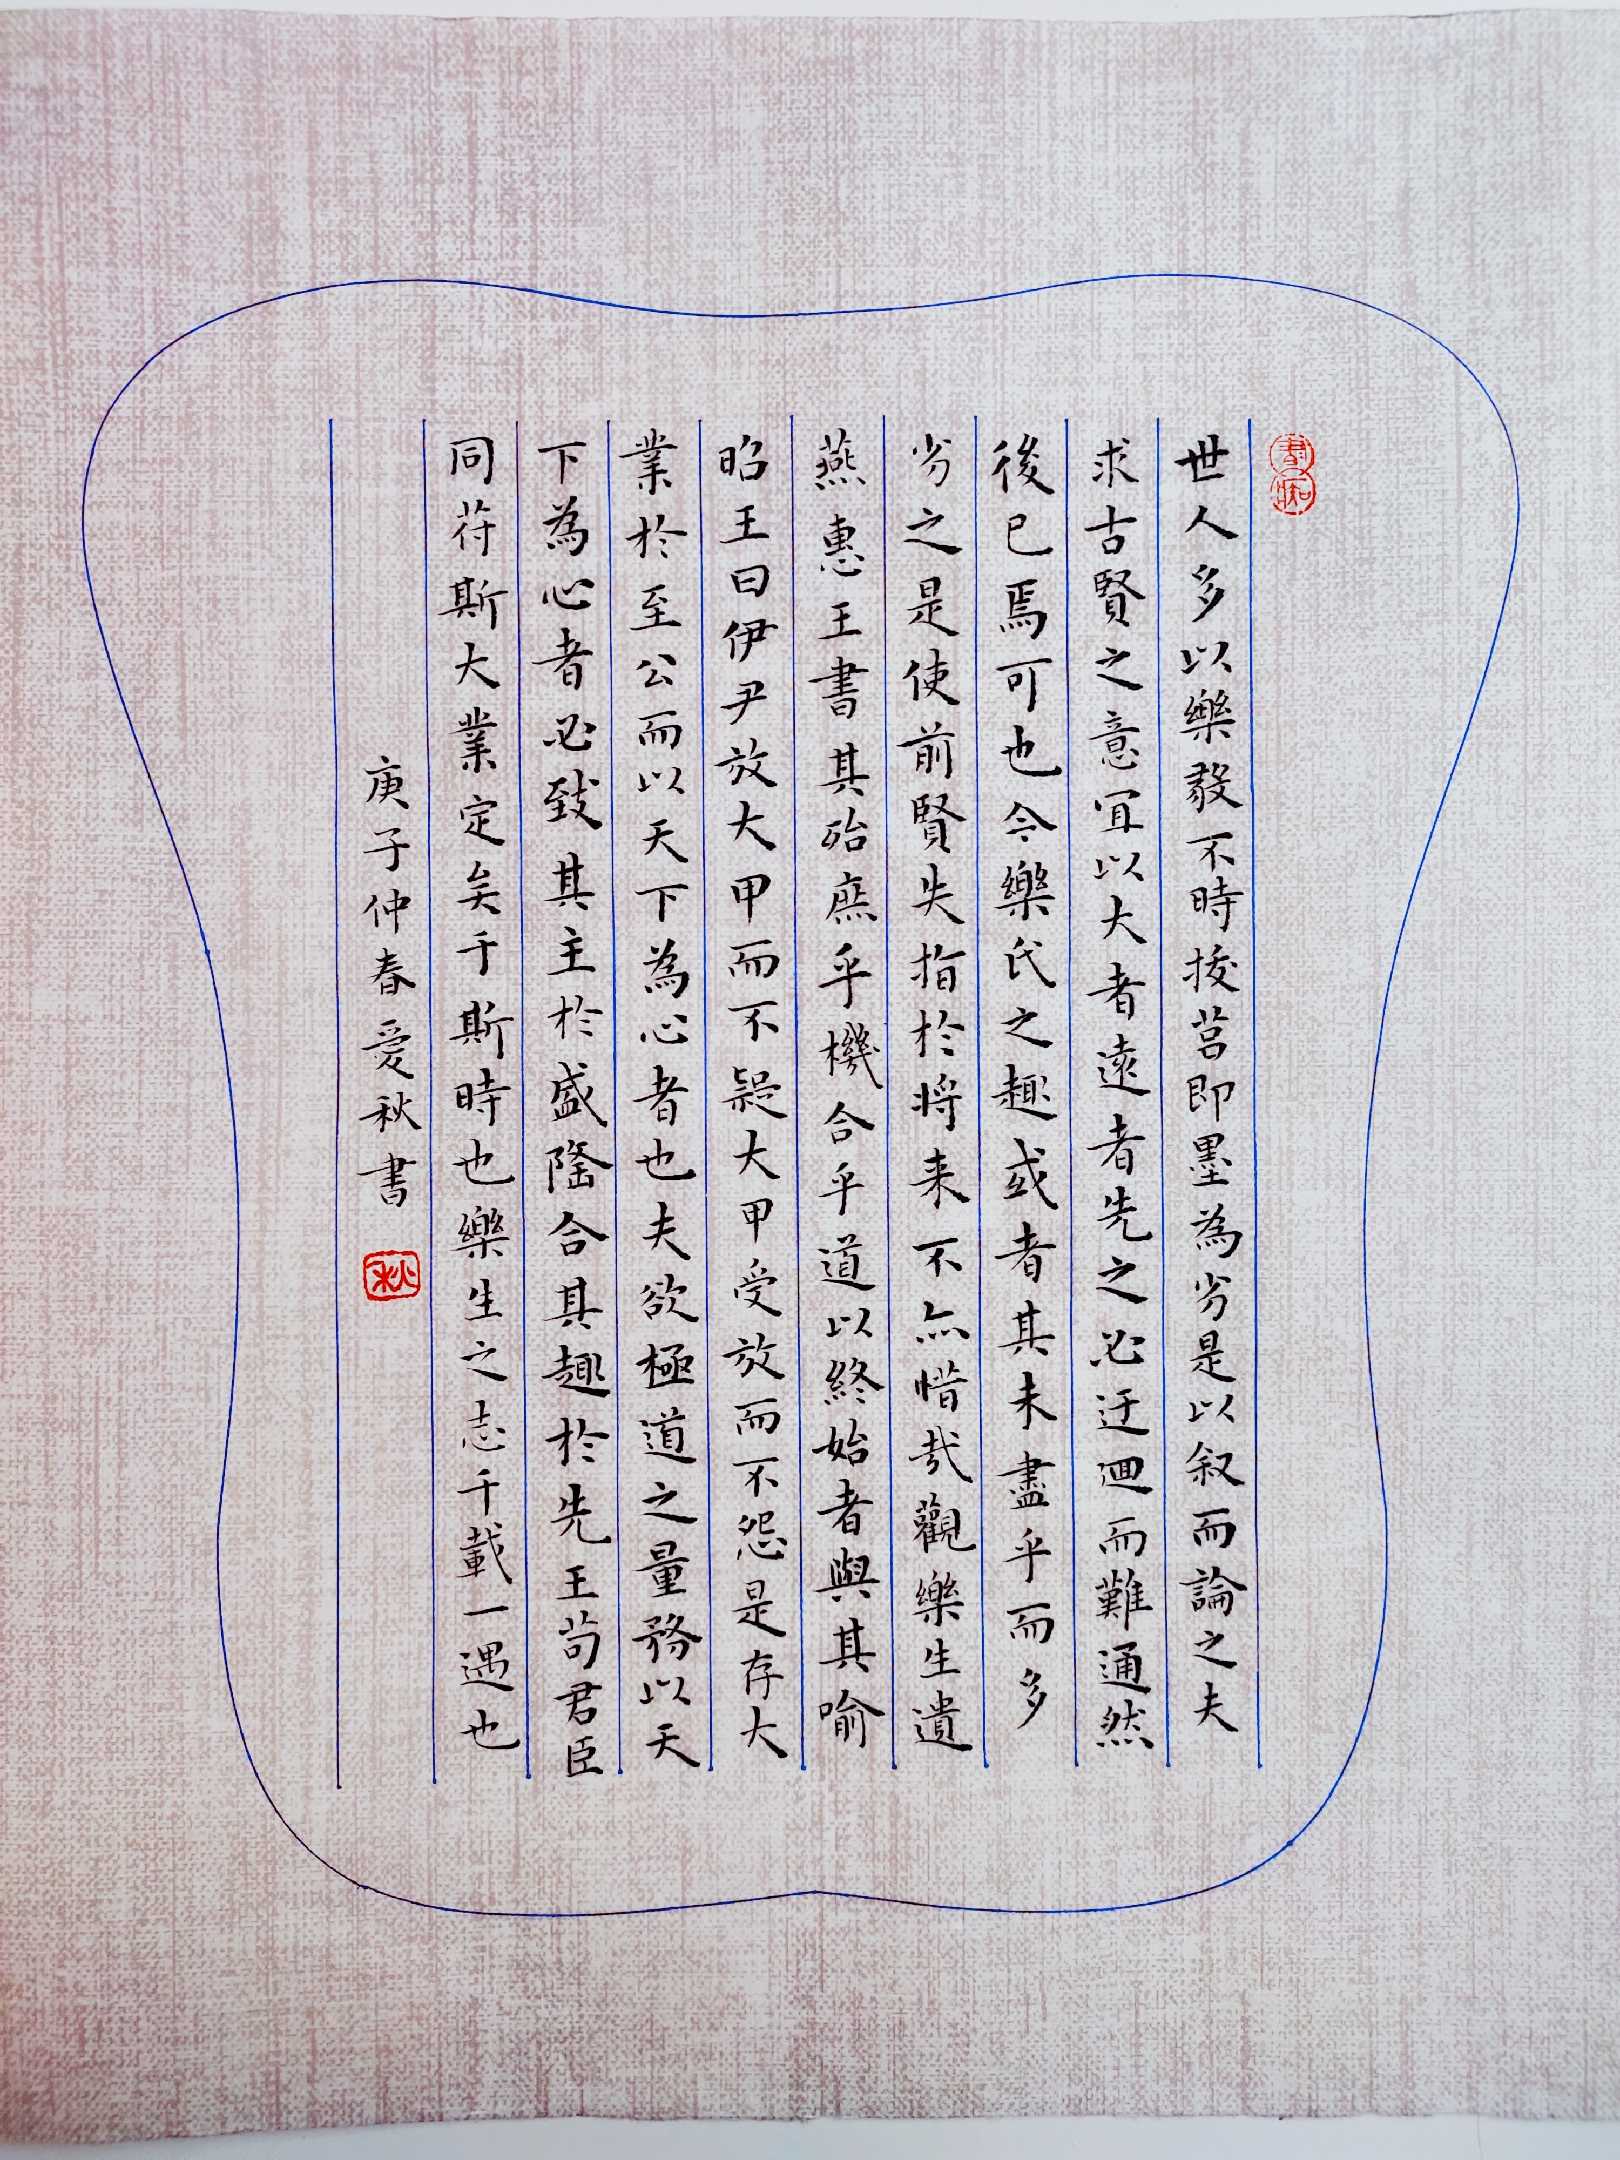 書痴
世人多以樂毅不時拔莒即墨為劣是以叙而論之夫
求古賢之意宜以大者遠者先之必迂迴而難通然
後已焉可也今樂氏之趣或者其未盡乎而多
劣之是使前賢失指於將来不亦惜哉觀樂生遺
燕惠王書其殆庶乎機合乎道以終始者與其喻
昭王曰伊尹放大甲而不疑大甲受放而不怨是存大
業於至公而以天下為心者也夫欲極道之量務以天
下為心者必致其主於盛隆合其趣於先王苟君臣
同苻斯大業定矣于斯時也樂生之志千載一遇也
庚子仲春爱秋書
秋